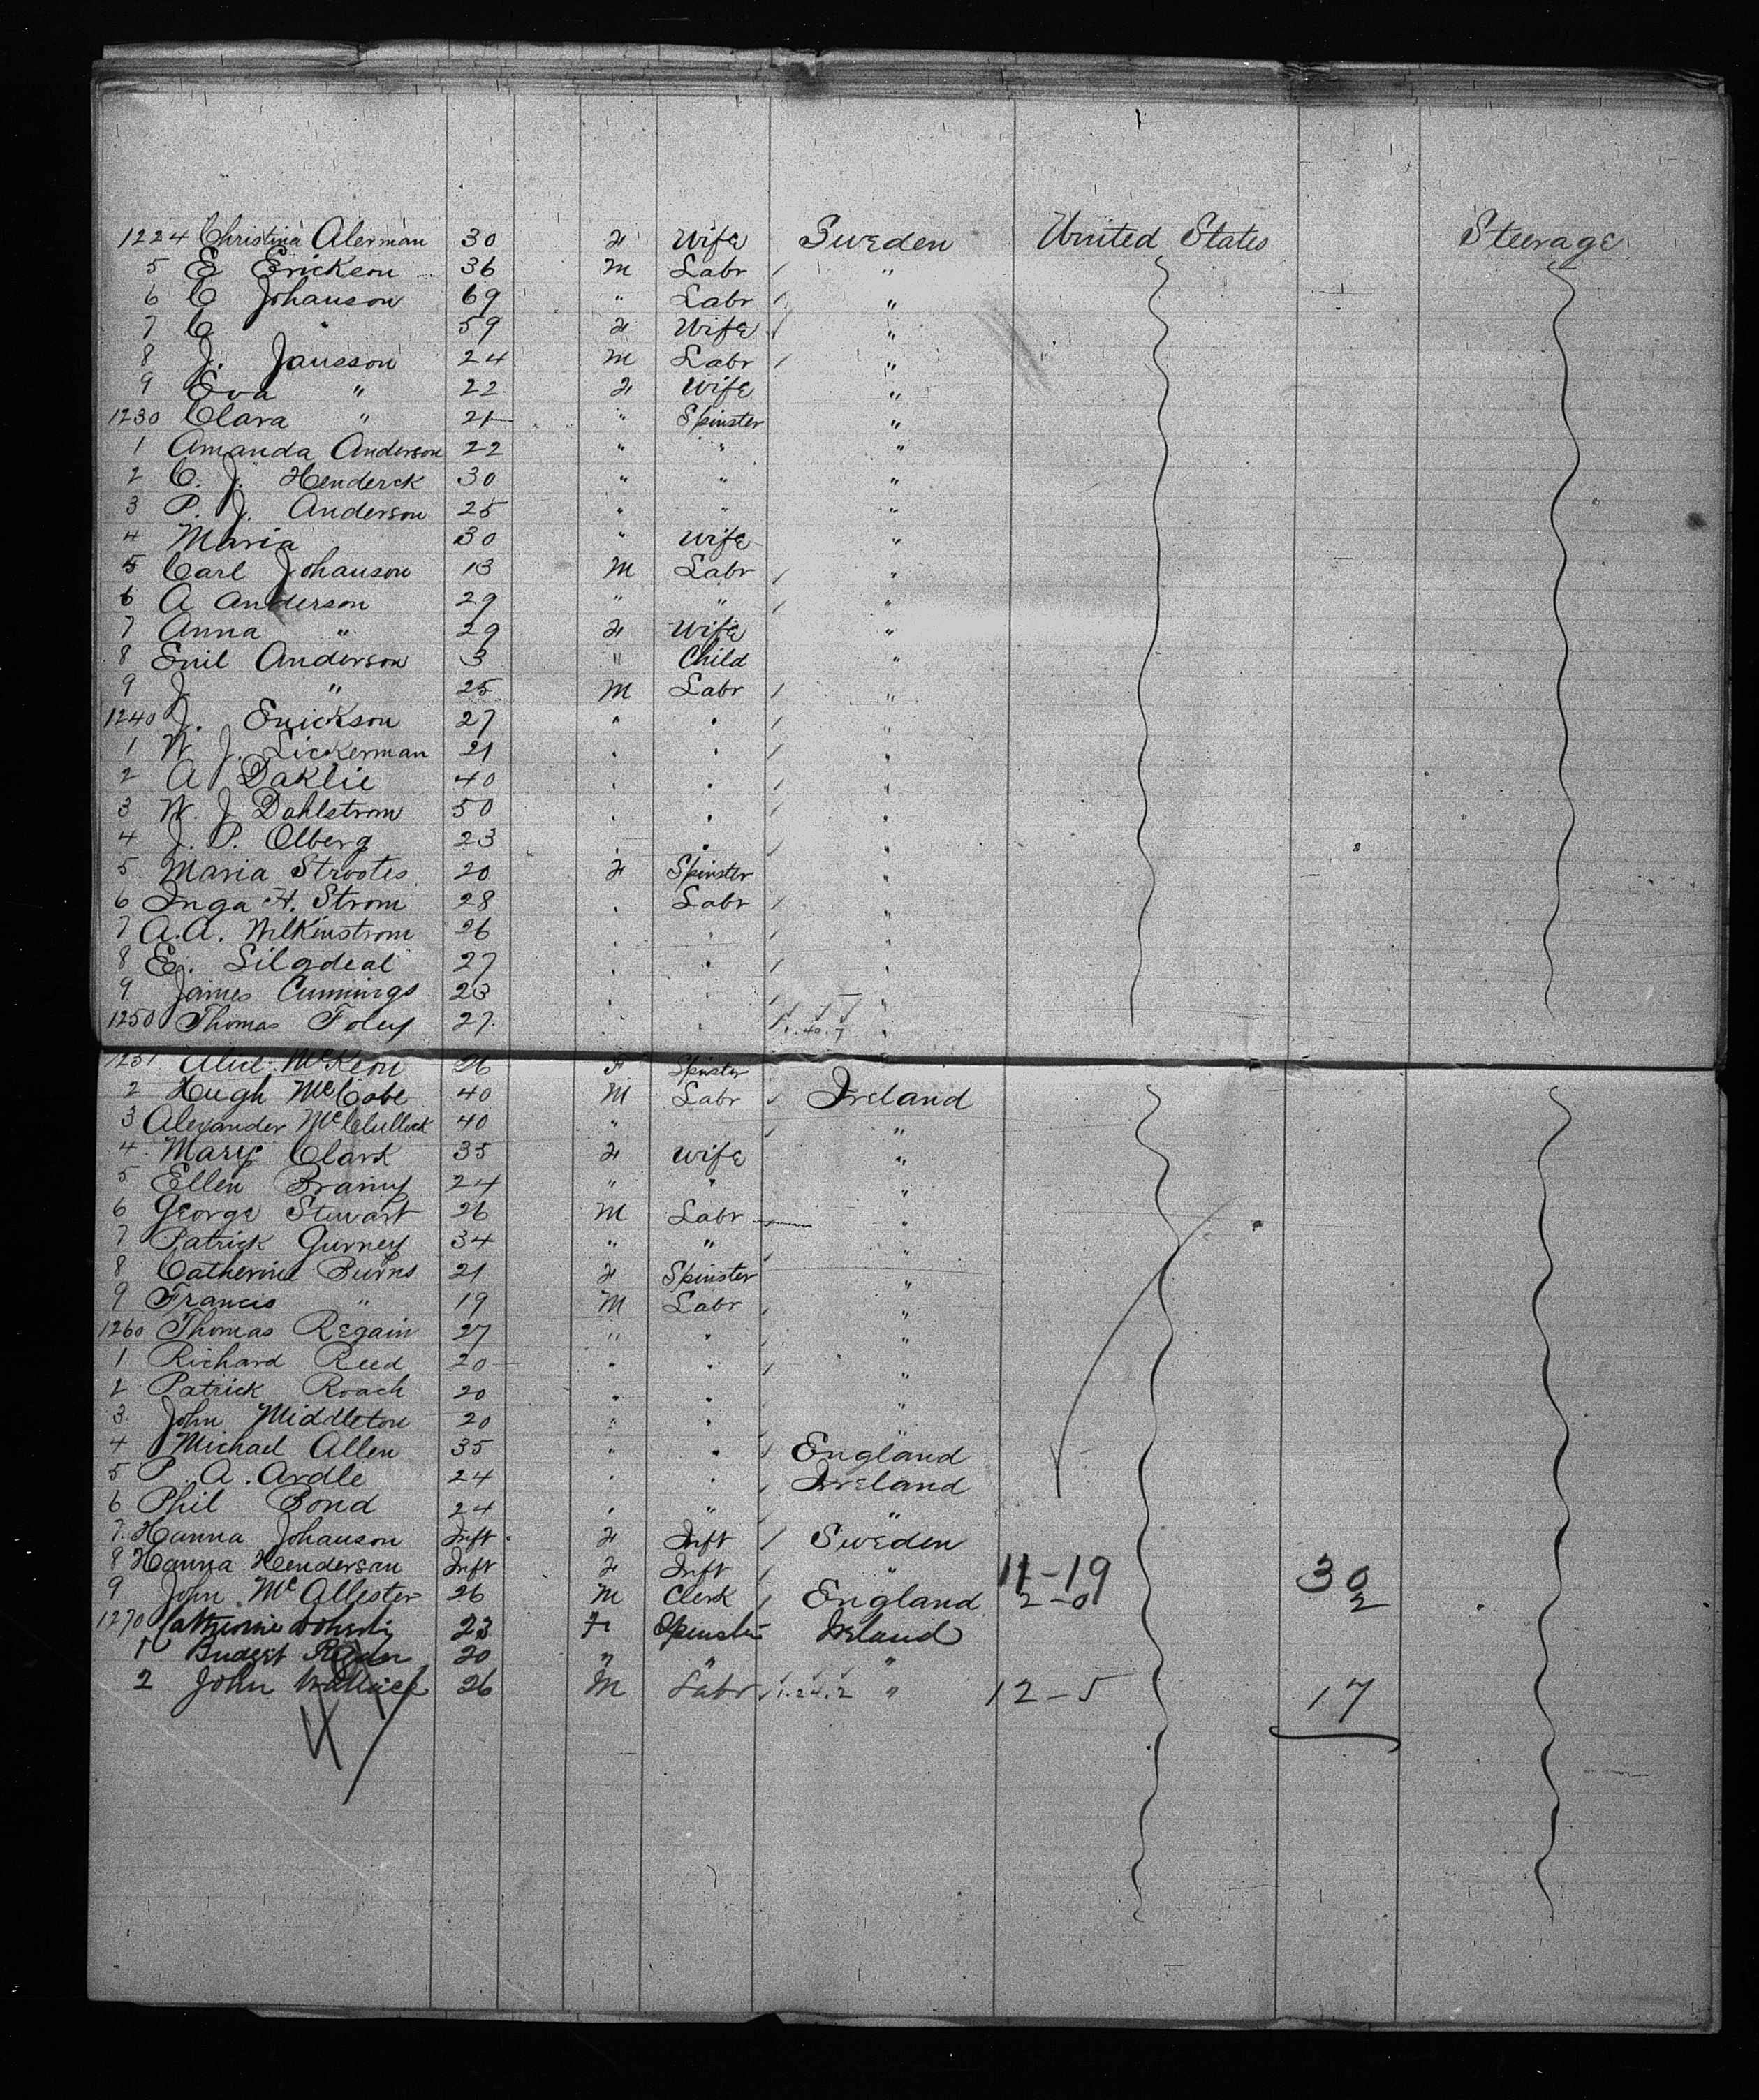 1224 Christina Alerman 30 F Wife Sweden United States Steerage
5 E Erickson 36 M Labr "
6 C Johanson 69 " Labr "
7 C " 59 F Wife "
8 J. Jansson 24 M Labr "
9 Eva " 22 F Wife "
1230 Clara " 21 " Spinster "
1 Amanda Anderson 22 " " "
2 C. J. Henderck 30 " " "
3 P. J. Anderson 25 " " "
4 Maria 30 " Wife "
5 Carl Johanson 13 M Labr "
6 A Anderson 29 " " "
7 Anna " 29 F Wife "
8 Emil Anderson 3 " Child "
9 J. " 25 M Labr "
1240 J. Erickson 27 " " "
1 W. J. Lickerman 21 " " "
2 A Daklie 40 " " "
3 W. J Dahlstrom 50 " " "
4 J. P. Olberg 23 " " "
5 Maria Strootes 20 F Spinster "
6 Inga H. Strom 28 " Labr "
7 A. A. Wilkinstrom 26 " " "
8 E. Silgdeal 27 " " "
9 James Cummings 23 " " "
1250 Thomas Foley 27 " " "
1251 Alice McKeon 26 F Spinster
2 Hugh McCobe 40 M Labr Ireland
3 Alexander McCullock 40 " "
4 Mary Clark 35 F Wife "
5 Ellen Brainy 24 " " "
6 George Stewart 26 M Labr "
7 Patrick Gurney 34 " " "
8 Catherine Burns 21 F Spinster "
9 Francis " 19 M Labr "
1260 Thomas Regain 27 " " "
1 Richard Reed 20 " " "
2 Patrick Roach 20 " " "
3 John Middleton 20 " " "
4 Michael Allen 35 " " England
5 P. A. Ardle 24 " " Ireland
6 Phil Bond 24 " " "
7 Hanna Johanson Inft F Inft Sweden
8 Hanna Henderson Inft F Inft " 11-19 30
9 John McAllester 26 M Clerk England 2-0 2
1270 Catherine Doherty 23 F Spinster Ireland
1 Budget 20 " " "
2 John Wallace 26 M Labr " 12-5 17